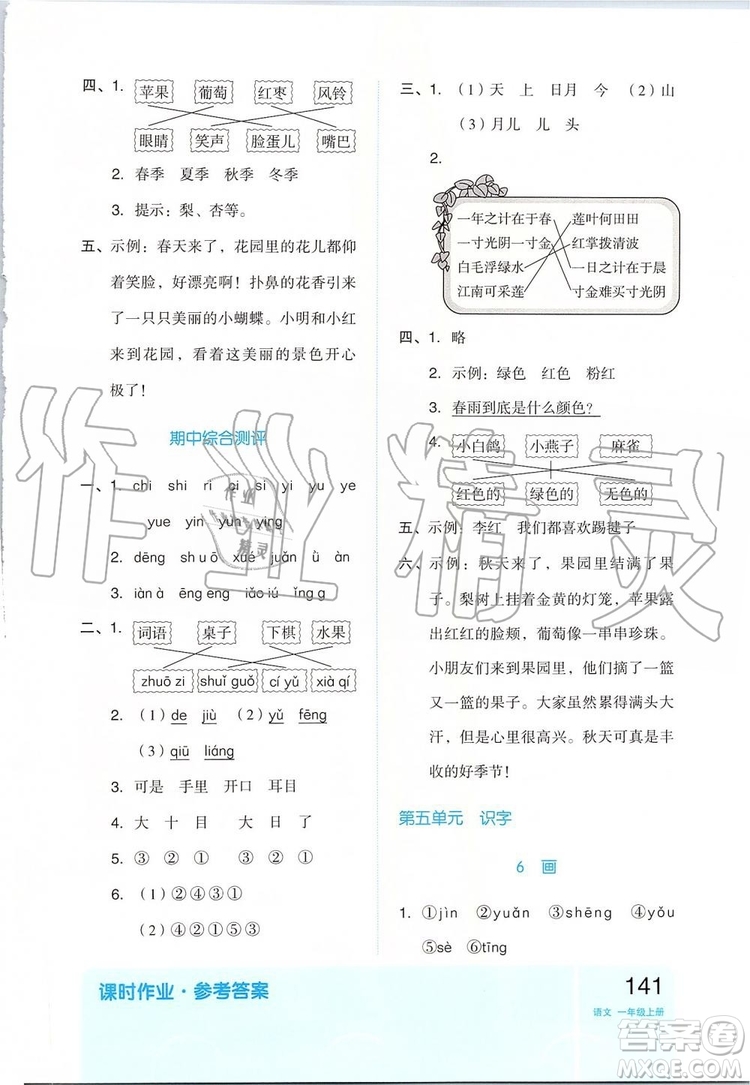 四、1. 苹果 葡萄 红枣 风铃
眼睛 笑声 脸蛋儿 嘴巴
2. 春季 夏季 秋季 冬季
3. 提示：梨、杏等。
五、示例：春天来了，花园里的花儿都仰
着笑脸，好漂亮啊！扑鼻的花香引来
了一只只美丽的小蝴蝶。小明和小红
来到花园，看着这美丽的景色开心
极了！
期中综合测评
一、1. chi shi ri zi si yi yu ye
yue yin yun ying
2. dēng shuō xué juǎn ù àn
3. iàn à ēng eng iǎo iú ǔ īng
二、1. 词语 桌子 下棋 水果
zhuō zi shuǐ guǒ cí yǔ xià qí
2. （1）de jiù （2）yǔ fēng
（3）qiū liáng
3. 可是 手里 开口 耳目
4. 大 十 目 大 日 了
5. ③ ① ② ① ② ③
6. （1）②④③①
（2）④②①⑤③
三、1. （1）天 上 日月 今 （2）山
（3）月儿 儿 头
2.
一年之计在于春 莲叶何田田
一寸光阴一寸金 红掌拨清波
白毛浮绿水 一日之计在于晨
江南可采莲 寸金难买寸光阴
四、1. 略
2. 示例：绿色 红色 粉红
3. 春雨到底是什么颜色？
4. 小白鸽 小燕子 麻雀
红色的 绿色的 无色的
五、示例：李红 我们都喜欢踢毽子
六、示例：秋天来了，果园里一片丰收果
子。梨树上挂着金黄的灯笼，苹果露
出红红的脸颊，葡萄像一串串珍珠。
小朋友们来到果园里，他们摘了一篮
又一篮的果子。大家虽然满头大
汗，但是心里很高兴。秋天可真是丰
收的好季节！
第五单元 识字
6 画
1. ①jìn ②yuǎn ③shēng ④yǒu
⑤sè ⑥tīng
课时作业·参考答案
141
语文 一年级上册
作业精灵
作业
精灵
答案圈
MXQE.COM